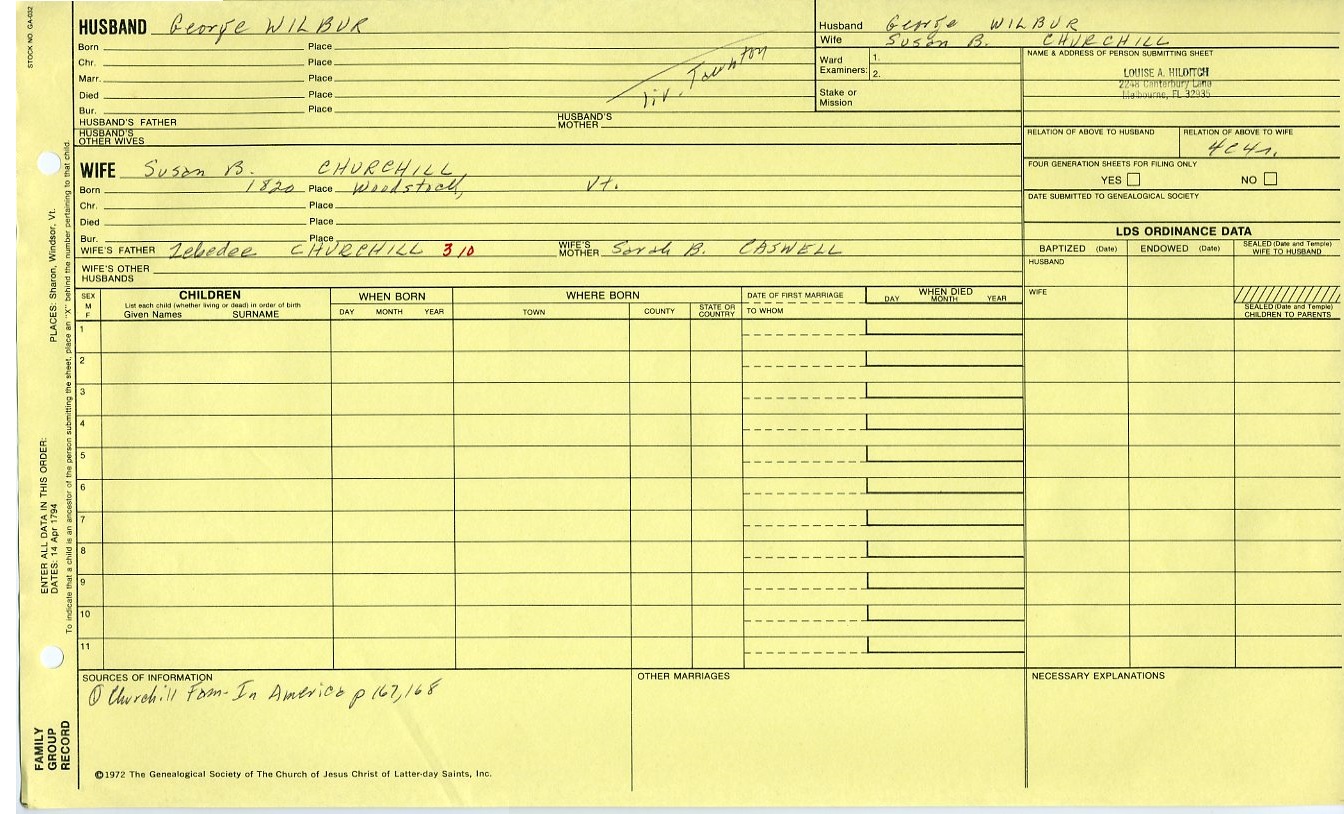 STOCK NO. GA-032
HUSBAND George WILBUR
Born Place
Chr. Place
Marr. Place
Died Place
Bur. Place
liv. Taunton
HUSBAND'S FATHER HUSBAND'S MOTHER
HUSBAND'S OTHER WIVES
Husband George WILBUR
Wife Susan B. CHURCHILL
Ward Examiners: 1.
2.
Stake or Mission
NAME & ADDRESS OF PERSON SUBMITTING SHEET
LOUISE A. HILDITCH
2248 Canterbury Lane
Melbourne, FL 32935
RELATION OF ABOVE TO HUSBAND RELATION OF ABOVE TO WIFE
4C4r.
FOUR GENERATION SHEETS FOR FILING ONLY
YES NO
DATE SUBMITTED TO GENEALOGICAL SOCIETY
WIFE Susan B. CHURCHILL
Born 1820 Place Woodstock, Vt.
Chr. Place
Died Place
Bur. Place
WIFE'S FATHER Zebedee CHURCHILL 310 WIFE'S MOTHER Sarah B. CASWELL
WIFE'S OTHER HUSBANDS
LDS ORDINANCE DATA
BAPTIZED (Date) ENDOWED (Date) SEALED (Date and Temple) WIFE TO HUSBAND
HUSBAND
WIFE
SEALED (Date and Temple) CHILDREN TO PARENTS
SEX M F
CHILDREN
List each child (whether living or dead) in order of birth
Given Names SURNAME
WHEN BORN
DAY MONTH YEAR
WHERE BORN
TOWN COUNTY STATE OR COUNTRY
DATE OF FIRST MARRIAGE
TO WHOM
WHEN DIED
DAY MONTH YEAR
1
2
3
4
5
6
7
8
9
10
11
SOURCES OF INFORMATION
① Churchill Fam- In America p 167, 168
OTHER MARRIAGES
NECESSARY EXPLANATIONS
©1972 The Genealogical Society of The Church of Jesus Christ of Latter-day Saints, Inc.
FAMILY GROUP RECORD
ENTER ALL DATA IN THIS ORDER:
DATES: 14 Apr 1794 PLACES: Sharon, Windsor, Vt.
To indicate that a child is an ancestor of the person submitting the sheet, place an "X" behind the number pertaining to that child.